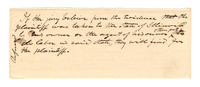 If the jury believe from the evidence that the
plaintiff was taken to the state of Illinois
by his owner or the agent of his owner &
to labor in said state, they will find for
the plaintiff.